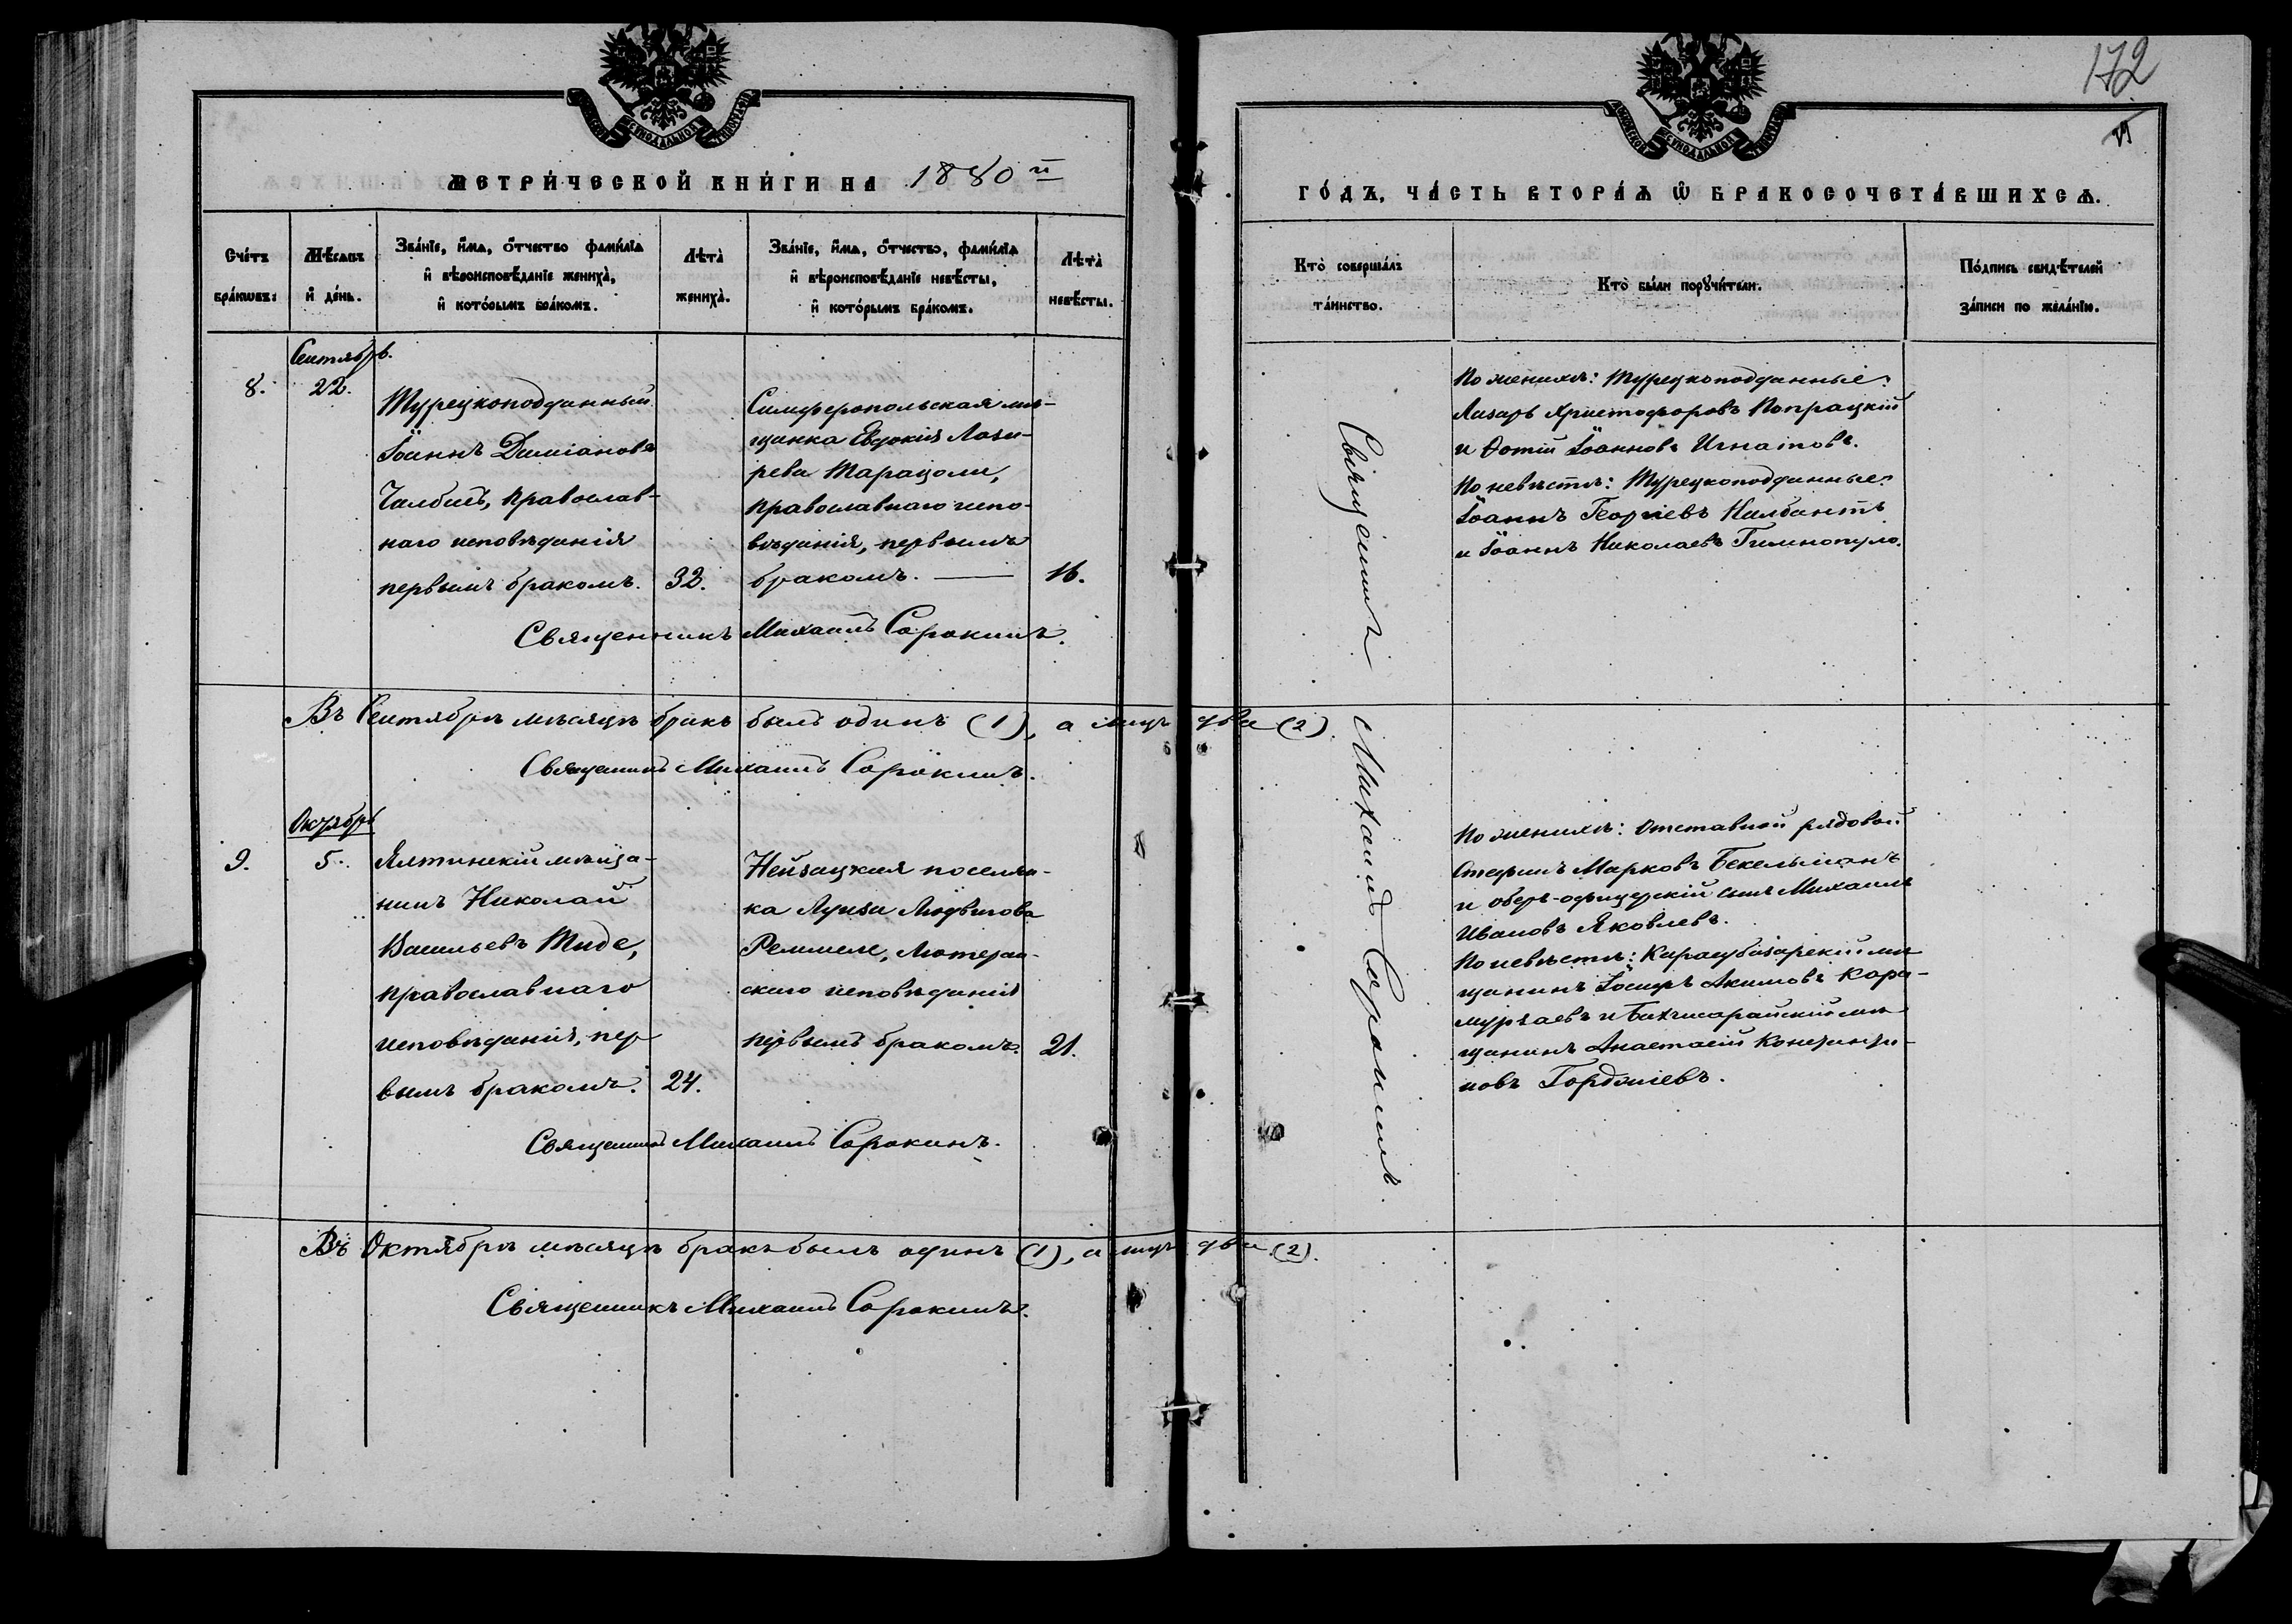 172
МЕТРИ́ЧЕСКОЙ КНИ́ГИ НА 1880й
ГО́ДЪ, ЧА́СТЬ ВТОРА́Ѧ Ѡ҆ БРАКОСОЧЕТА́ВШИХСѦ.
Сче́тъ бра́кѡвъ:
Мѣ́сѧцъ и҆ де́нь.
Зва́нїе, и҆́мѧ, ѻ҆́тчество фами́лїѧ
и҆ вѣроисповѣ́данїе жениха̀,
и҆ кото́рымъ бра́комъ.
Лѣта̀ жениха̀.
Зва́нїе, и҆́мѧ, ѻ҆́тчество, фами́лїѧ
и҆ вѣроисповѣ́данїе невѣ́сты,
и҆ кото́рымъ бра́комъ.
Лѣта̀ невѣ́сты.
Кто̀ соверша́лъ та́инство.
Кто̀ бы́ли порꙋчи́тели.
По́дпись свидѣ́телей за́писи по жела́нїю.
Сентябрь.
8.
22.
Турецкоподданный
Іоаннъ Даміановъ
Чалбашъ, православ-
наго исповѣданія
первымъ бракомъ.
32.
Симферопольская мѣ-
щанка Евдокія Лаза-
рева Тарацоли,
православнаго испо-
вѣданія, первымъ
бракомъ. —
16.
Священникъ Михаилъ Сорокинъ.
Священникъ Михаилъ Сорокинъ.
По женихѣ: Турецкоподданные:
Лазарь Христофоровъ Попрацкій
и Ѳотій Іоанновъ Игнатовъ.
По невѣстѣ: Турецкоподданные:
Іоаннъ Георгіевъ Налбантъ
и Іоаннъ Николаевъ Гимнопуло.
Въ Сентябрѣ мѣсяцѣ бракъ былъ одинъ (1), а лицъ два (2).
Священникъ Михаилъ Сорокинъ.
Октябрь
9.
5.
Ялтинскій мѣща-
нинъ Николай
Васильевъ Тиде,
православнаго
исповѣданія, пер-
вымъ бракомъ.
24.
Нейзацкая поселян-
ка Луиза Людвигова
Реммеле, Лютеран-
скаго исповѣданія
первымъ бракомъ.
21.
Священникъ Михаилъ Сорокинъ.
По женихѣ: Отставной рядовой
Стефанъ Марковъ Бекельманъ
и оберъ-офицерскій сынъ Михаилъ
Ивановъ Яковлевъ.
По невѣстѣ: Карасубазарскій мѣ-
щанинъ Іосифъ Акимовъ Кара-
мурзаевъ и Бахчисарайскій мѣ-
щанинъ Анастасій Константи-
новъ Гордоніевъ.
Въ Октябрѣ мѣсяцѣ бракъ былъ одинъ (1), а лицъ два (2).
Священникъ Михаилъ Сорокинъ.